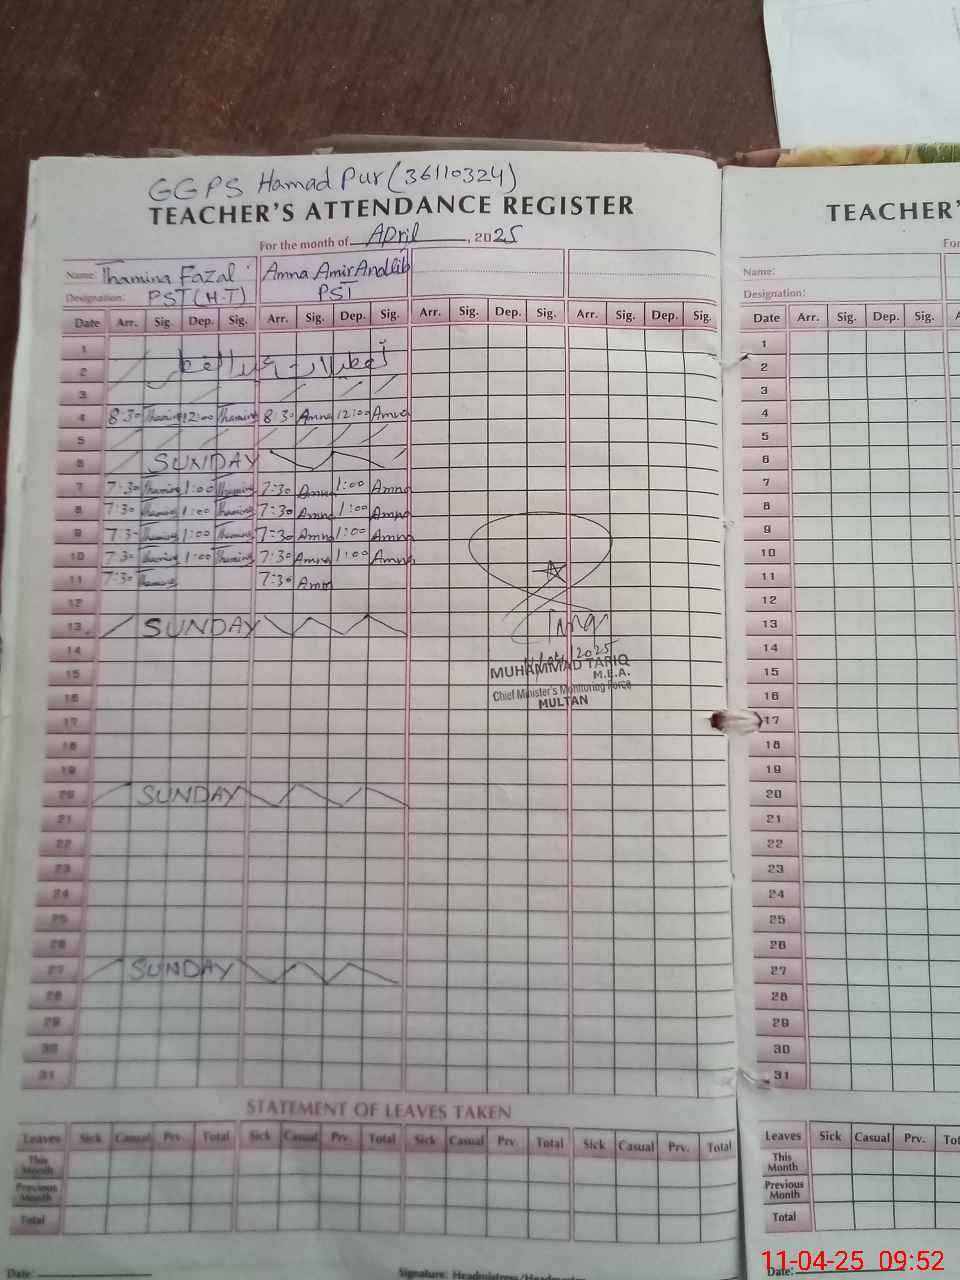 GGPS Hamad Pur (36110324)
TEACHER'S ATTENDANCE REGISTER
For the month of April, 2025
Name: Thamina Fazal Amna Amir Andlib
Designation: PST (H.T) PST
Date Arr. Sig. Dep. Sig. Arr. Sig. Dep. Sig. Arr. Sig. Dep. Sig. Arr. Sig. Dep. Sig.
1
2 تعطیلات عید الفطر
3
4 8:30 Thamina 12:00 Thamina 8:30 Amna 12:00 Amna
5
6 SUNDAY
7 7:30 Thamina 1:00 Thamina 7:30 Amna 1:00 Amna
8 7:30 Thamina 1:00 Thamina 7:30 Amna 1:00 Amna
9 7:30 Thamina 1:00 Thamina 7:30 Amna 1:00 Amna
10 7:30 Thamina 1:00 Thamina 7:30 Amna 1:00 Amna
11 7:30 Thamina 7:30 Amna
12
13 SUNDAY
14
15
16
17
18
19
20 SUNDAY
21
22
23
24
25
26
27 SUNDAY
28
29
30
31
MUHAMMAD TARIQ
M.E.A.
Chief Minister's Monitoring Force
MULTAN
STATEMENT OF LEAVES TAKEN
Leaves Sick Casual Prv. Total Sick Casual Prv. Total Sick Casual Prv. Total Sick Casual Prv. Total
This Month
Previous Month
Total
Date:
Signature: Headmistress/
TEACHER'
Name:
Designation:
Date Arr. Sig. Dep. Sig.
1
2
3
4
5
6
7
8
9
10
11
12
13
14
15
16
17
18
19
20
21
22
23
24
25
26
27
28
29
30
31
Leaves Sick Casual Prv.
This Month
Previous Month
Total
Date:
11-04-25 09:52